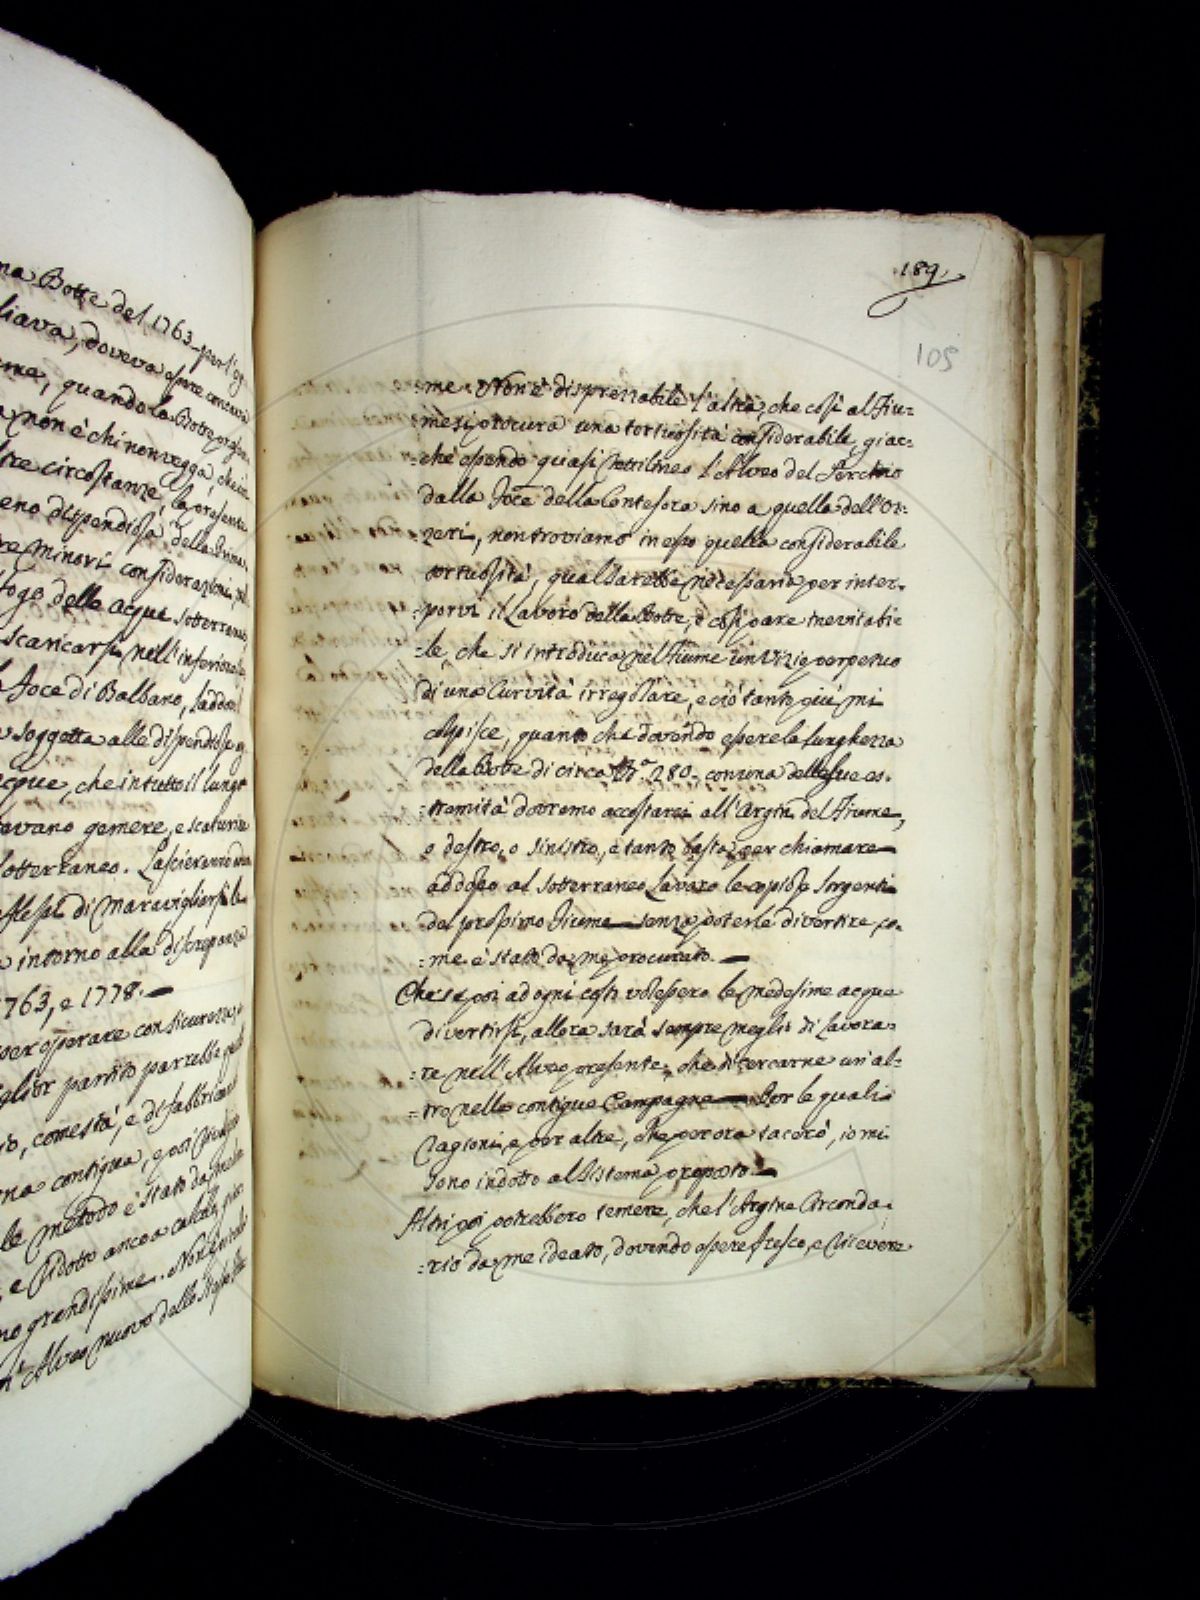 ma Botte del 1763. per l'og
liava, doveva essere concava
eme, quando la Botte presen
non è chi non vegga, che in
tre circostanze, la presente
eno dispendiosa della prima,
re minori considerazioni, nel
fogo delle acque sotterranee
scaricarsi nell'inferiore
Foce di Balbano, laddove
soggetta alle dispendiose
cque, che in tutto il lungo
avano gemere, e scaturire
sotterraneo. Lascieranno
stessi di maravigliarsi
intorno alla discrepanza
1763, e 1778. —
per operare con sicurezza,
glior partito parrebbe
io, come stà, e di fabbricare
na contigua, e poi
le metodo è stato da me
e ridotto ancora a calcolo,
no grandissime. Non
Alveo nuovo dalle
189
105
:me. Non è disprezzabile l'altra, che così al Fiu:
:me si procura una tortuosità considerabile, giac:
:ché essendo quasi rettilineo l'Alveo del Serchio
dalla Foce della Contesora sino a quella dell'Oz:
:zeri, non troviamo in esso quella considerabile
tortuosità, qual sarebbe necessaria per inter:
:porvi il Lavoro della Botte, e così pare inevitabi:
:le che si introduca nel Fiume un Vizio perpetuo
di una Curvità irregolare, e ciò tanto più mi
colpisce, quanto che dovendo essere la lunghezza
della Botte di circa 280. con una delle sue es:
:tremità dovremo accostarci all'Argin del Fiume,
o destro, o sinistro, e tanto basta per chiamare
addosso al sotterraneo Lavoro le copiose sorgenti
del prossimo Fiume — senza poterle divertire co:
:me è stato da me procurato. —
Che se poi ad ogni costo volessero le medesime acque
divertirsi, allora sarà sempre meglio di lavora:
:re nell'Alveo presente, che di cercarne un'al:
:tro nelle contigue Campagne — Per le quali
ragioni, e per altre, che per ora tacerò, io mi
sono indotto al Sistema proposto. —
Altri poi potrebbero temere, che l'Argine Circonda:
:rio da me ideato, dovendo essere fresco, e ricevere